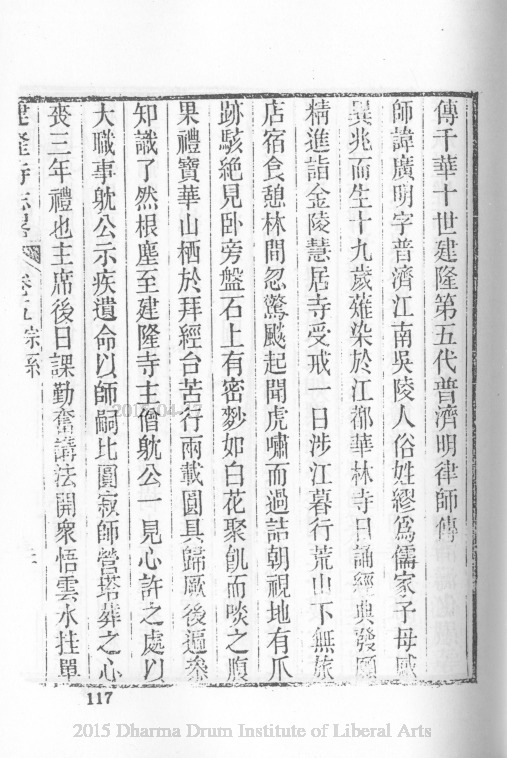 傳千華十世建隆第五代普濟明律師傳
師諱廣明字普濟江南吳陵人俗姓繆為儒家子母感
異兆而生十九歲薙染於江都華林寺日誦經典發願
精進詣金陵慧居寺受戒一日涉江暮行荒山下無旅
店宿食憩林間忽驚颷起聞虎嘯而過詰朝視地有爪
跡駭絕見卧旁盤石上有密麨如白花聚飢而啖之腹
果禮寶華山栖於拜經台苦行兩載圓具歸厥後遍叅
知識了然根塵至建隆寺主僧躭公一見心許之處以
大職事躭公示疾遺命以師嗣比圓寂師營塔葬之心
喪三年禮也主席後日課勤奮講法開衆悟雲水挂單
建隆寺志畧 卷五宗系
117
2015 Dharma Drum Institute of Liberal Arts